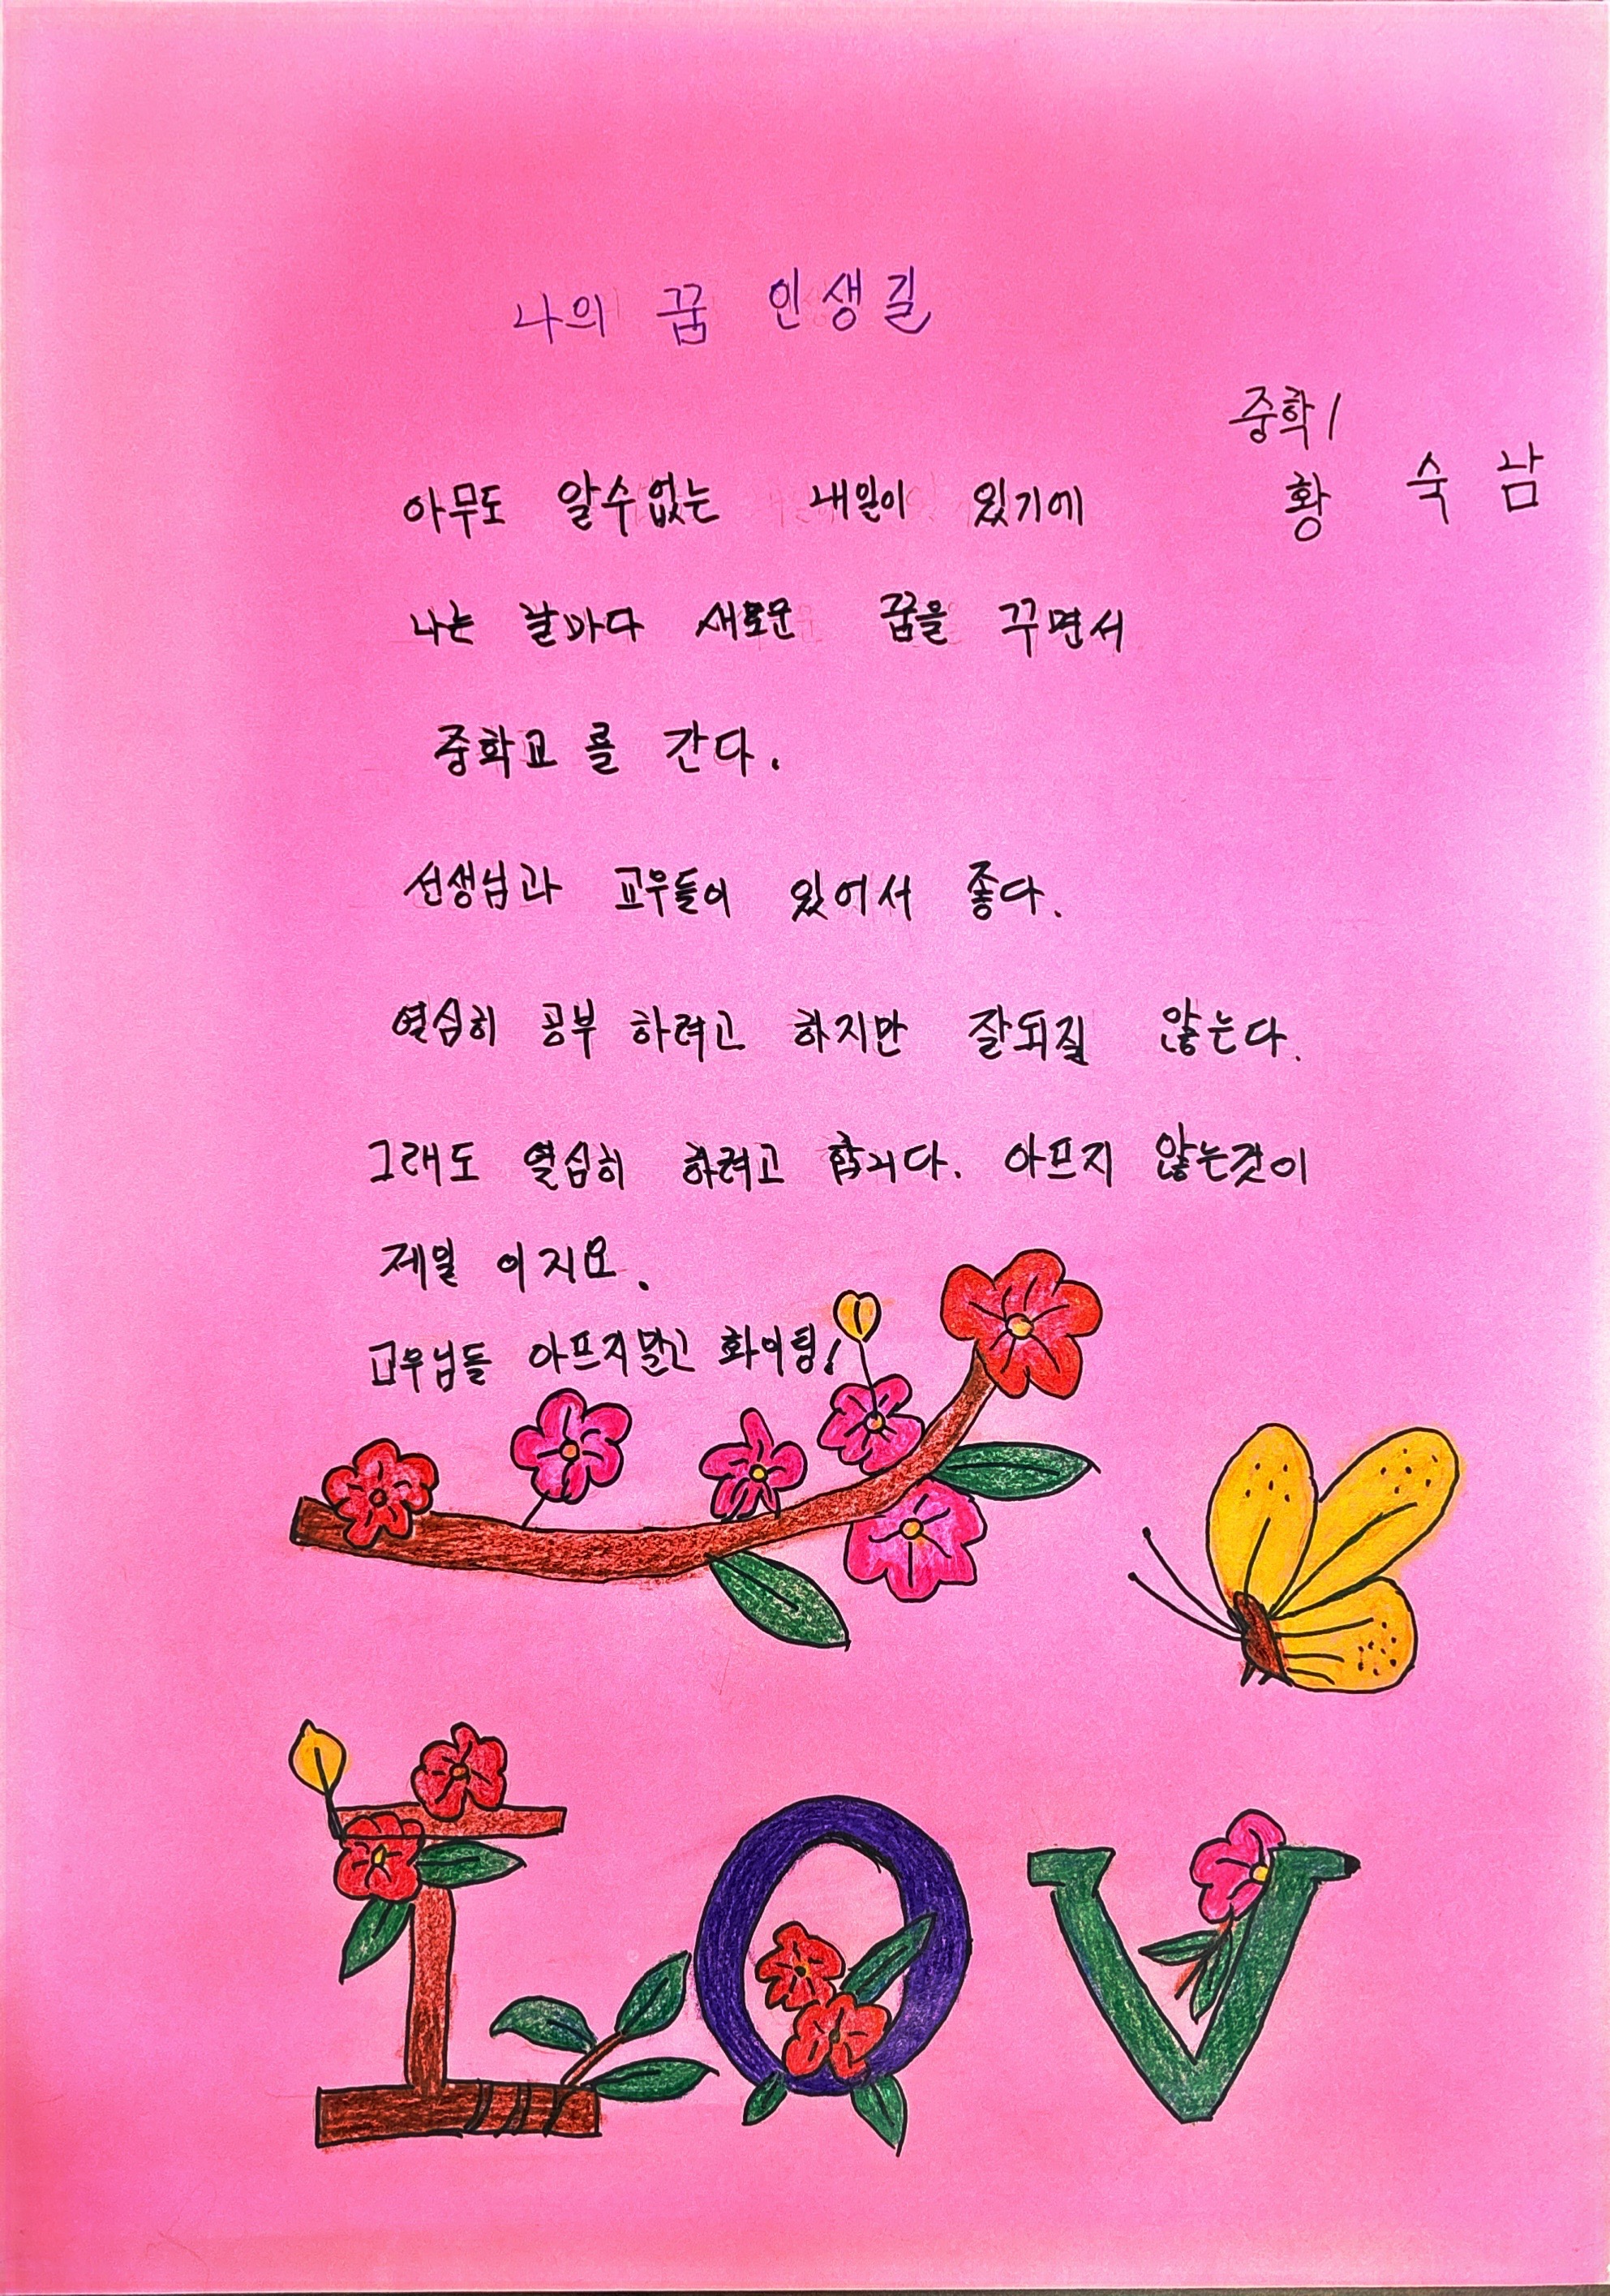 나의 꿈 인생길
중학1
황 숙 남
아무도 알수없는 내일이 있기에
나는 날마다 새로운 꿈을 꾸면서
중학교 를 간다.
선생님과 교우들이 있어서 좋다.
열심히 공부 하려고 하지만 잘되질 않는다.
그래도 열심히 하려고 합니다. 아프지 않는것이
제일 이지요.
교우님들 아프지말고 화이팅!
I O V